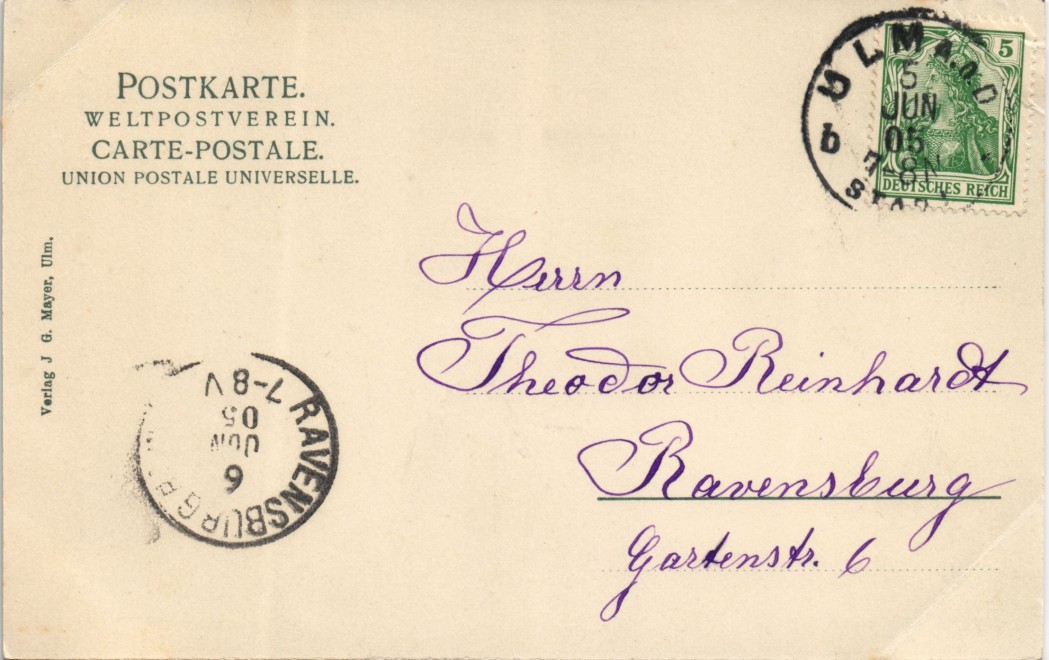 POSTKARTE.
WELTPOSTVEREIN.
CARTE-POSTALE.
UNION POSTALE UNIVERSELLE.
Verlag J G. Mayer, Ulm.
ULM A.D.D
5
JUN
05
7-8N
b
5
DEUTSCHES REICH
Herrn
Theodor Reinhardt
Ravensburg
Gartenstr. 6
RAVENSBURG
6
JUN
05
7-8V